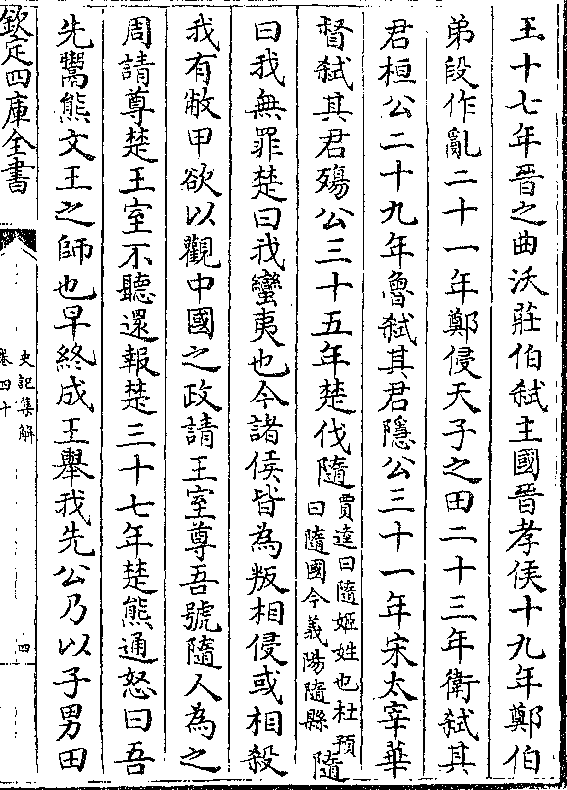 王十七年晉之曲沃莊伯弑主國晉孝侯十九年鄭伯
弟段作亂二十一年鄭侵天子之田二十三年衛弑其
君桓公二十九年魯弑其君隱公三十一年宋太宰華
督弑其君殤公三十五年楚伐隨賈逵曰隨姬姓也杜預曰隨國今義陽隨縣隨
曰我無罪楚曰我蠻夷也今諸侯皆為叛相侵或相殺
我有敝甲欲以觀中國之政請王室尊吾號隨人為之
周請尊楚王室不聽還報楚三十七年楚熊通怒曰吾
先鬻熊文王之師也早終成王舉我先公乃以子男田
欽定四庫全書
史記集解
卷四十
四